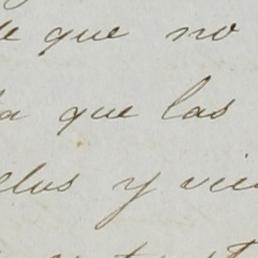 e que no
a que las
elos y vie